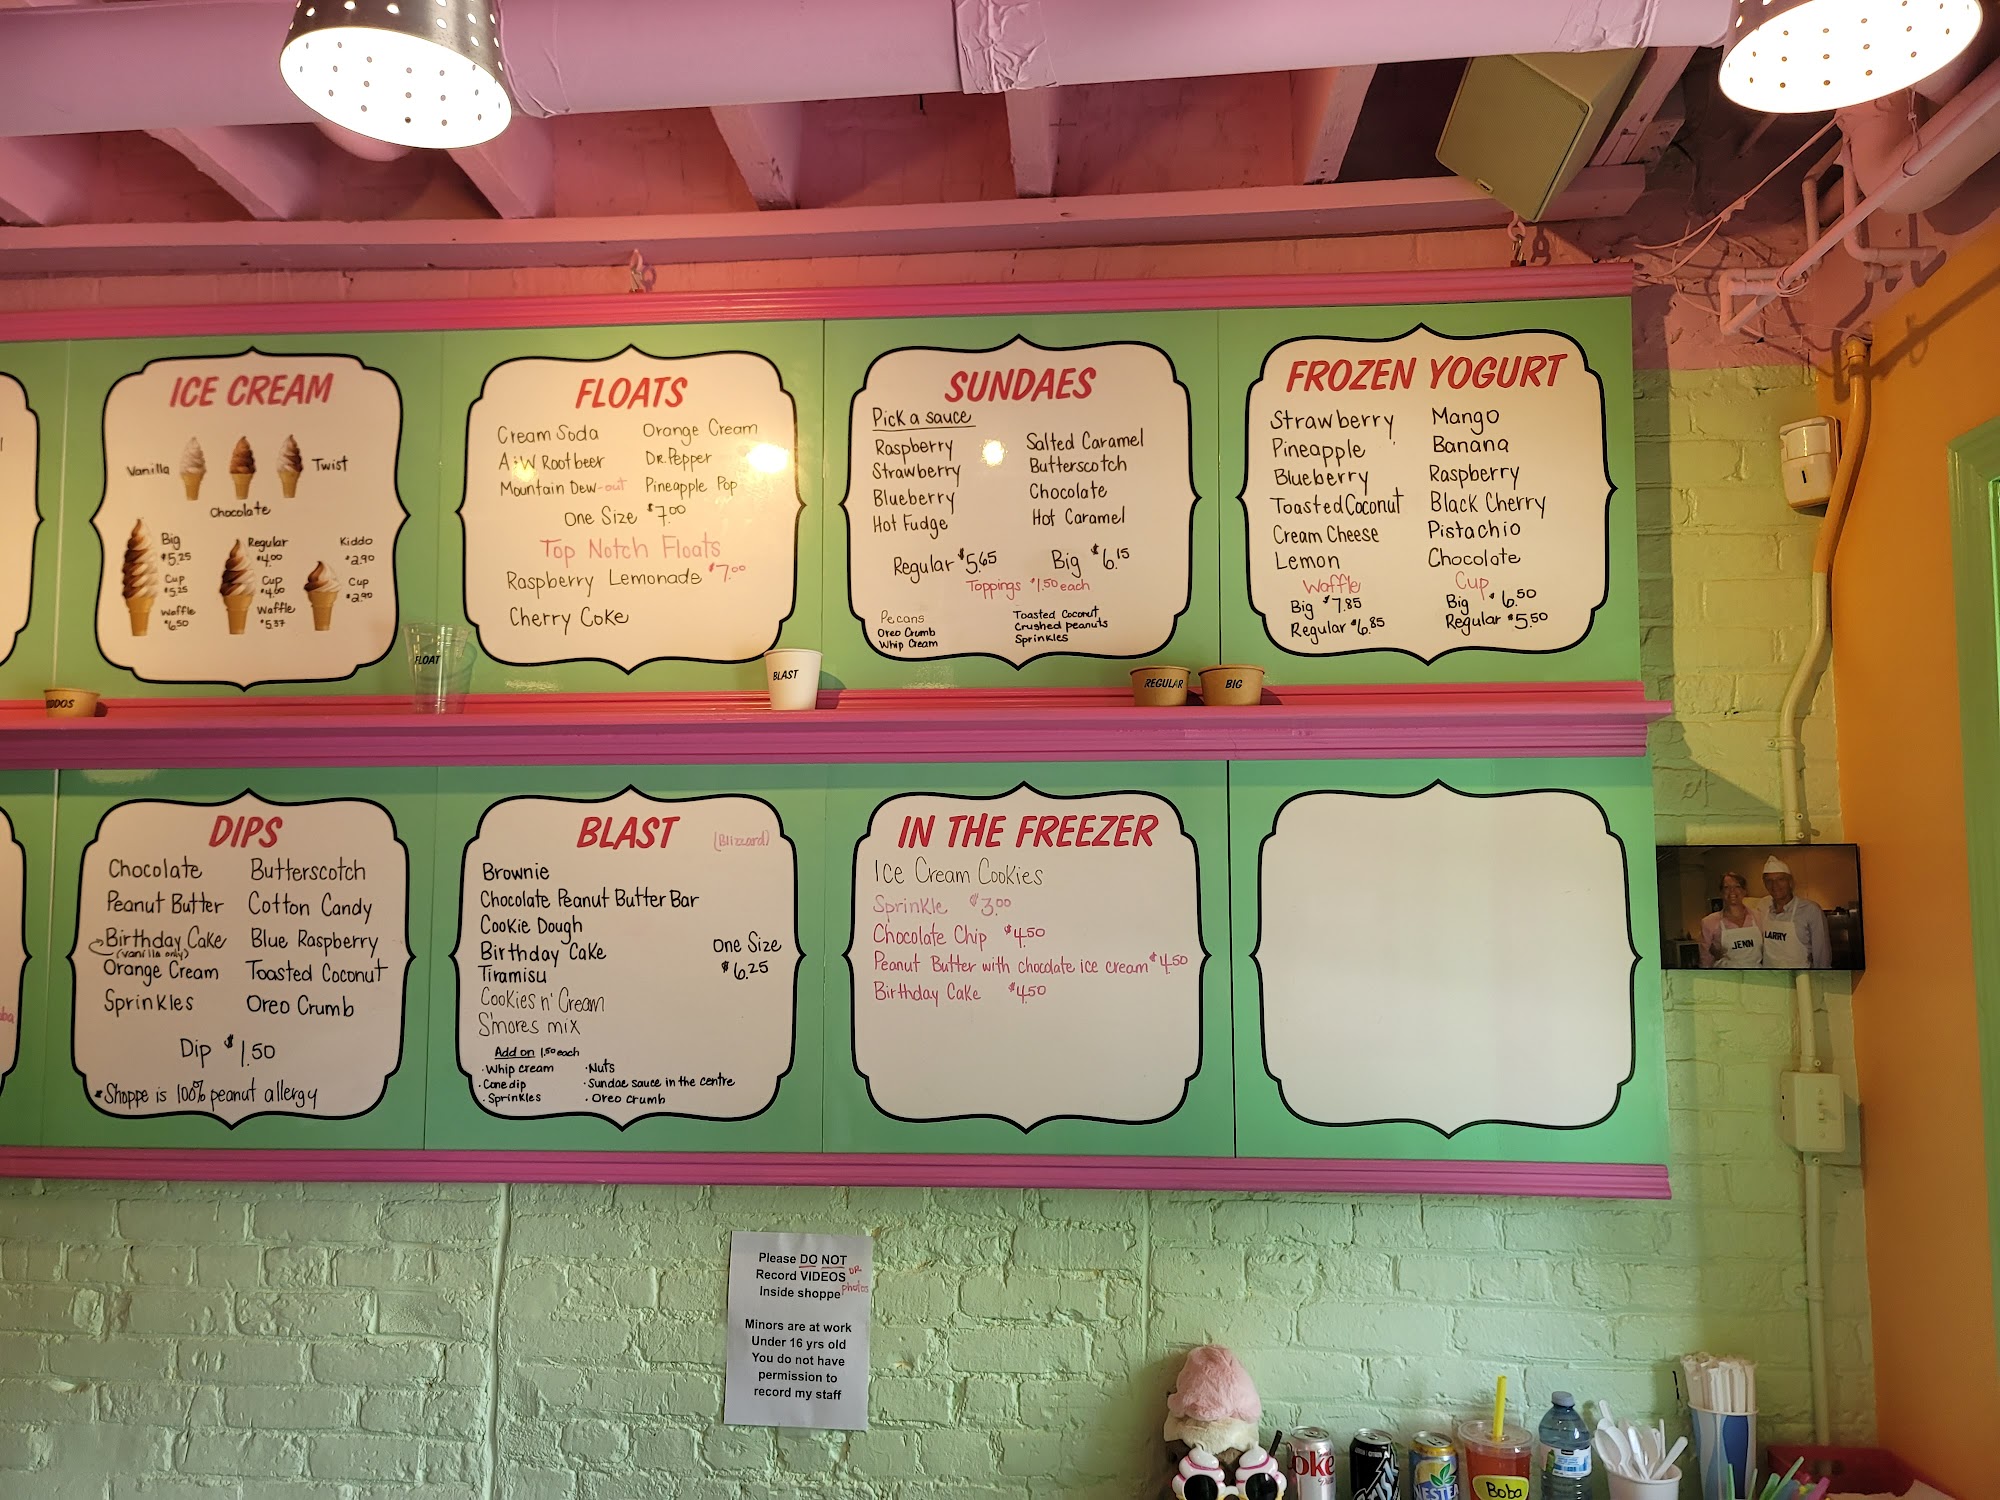 ICE CREAM
Vanilla
Twist
Chocolate
Big
$5.25
Cup
$5.25
Waffle
$6.50
Regular
$4.00
Cup
$4.00
Waffle
$5.37
Kiddo
$2.90
Cup
$2.90
FLOATS
Cream Soda Orange Cream
A&W Rootbeer Dr. Pepper
Mountain Dew-out Pineapple Pop
One Size $7.00
Top Notch Floats
Raspberry Lemonade $7.00
Cherry Coke
SUNDAES
Pick a sauce
Raspberry Salted Caramel
Strawberry Butterscotch
Blueberry Chocolate
Hot Fudge Hot Caramel
Regular $5.65 Big $6.15
Toppings $1.50 each
Pecans Toasted Coconut
Oreo Crumb Crushed peanuts
Whip Cream Sprinkles
FROZEN YOGURT
Strawberry Mango
Pineapple Banana
Blueberry Raspberry
Toasted Coconut Black Cherry
Cream Cheese Pistachio
Lemon Chocolate
Waffle Cup
Big $7.85 Big $6.50
Regular $6.85 Regular $5.50
FLOAT
BLAST
REGULAR
BIG
DIPS
Chocolate Butterscotch
Peanut Butter Cotton Candy
Birthday Cake Blue Raspberry
(vanilla only)
Orange Cream Toasted Coconut
Sprinkles Oreo Crumb
Dip $1.50
*Shoppe is 100% peanut allergy
BLAST (Blizzard)
Brownie
Chocolate Peanut Butter Bar
Cookie Dough
Birthday Cake
Tiramisu
Cookies n' Cream
S'mores mix
One Size
$6.25
Add on 1.50 each
· Whip cream · Nuts
· Cone dip · Sundae sauce in the centre
· Sprinkles · Oreo crumb
IN THE FREEZER
Ice Cream Cookies
Sprinkle $3.00
Chocolate Chip $4.50
Peanut Butter with chocolate ice cream $4.50
Birthday Cake $4.50
JENN
LARRY
Please DO NOT
Record VIDEOS OR
Inside shoppe photos
Minors are at work
Under 16 yrs old
You do not have
permission to
record my staff
oke
NESTEA
Boba